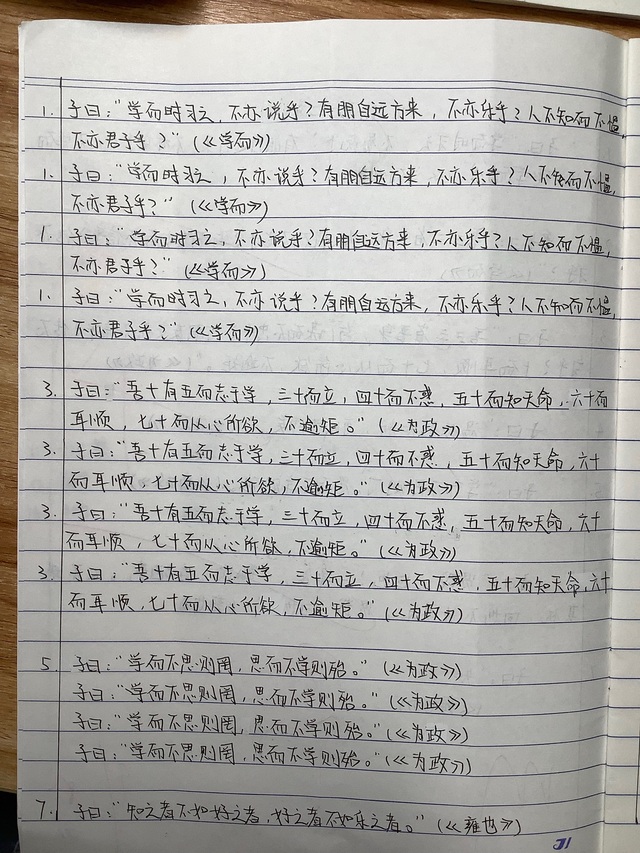 1. 子曰："学而时习之，不亦说乎？有朋自远方来，不亦乐乎？人不知而不愠，
不亦君子乎？"（《学而》）
1. 子曰："学而时习之，不亦说乎？有朋自远方来，不亦乐乎？人不知而不愠，
不亦君子乎？"（《学而》）
1. 子曰："学而时习之，不亦说乎？有朋自远方来，不亦乐乎？人不知而不愠，
不亦君子乎？"（《学而》）
1. 子曰："学而时习之，不亦说乎？有朋自远方来，不亦乐乎？人不知而不愠，
不亦君子乎？"（《学而》）
3. 子曰："吾十有五而志于学，三十而立，四十而不惑，五十而知天命，六十而
耳顺，七十而从心所欲，不逾矩。"（《为政》）
3. 子曰："吾十有五而志于学，三十而立，四十而不惑，五十而知天命，六十
而耳顺，七十而从心所欲，不逾矩。"（《为政》）
3. 子曰："吾十有五而志于学，三十而立，四十而不惑，五十而知天命，六十
而耳顺，七十而从心所欲，不逾矩。"（《为政》）
3. 子曰："吾十有五而志于学，三十而立，四十而不惑，五十而知天命，六十
而耳顺，七十而从心所欲，不逾矩。"（《为政》）
5. 子曰："学而不思则罔，思而不学则殆。"（《为政》）
子曰："学而不思则罔，思而不学则殆。"（《为政》）
子曰："学而不思则罔，思而不学则殆。"（《为政》）
子曰："学而不思则罔，思而不学则殆。"（《为政》）
7. 子曰："知之者不如好之者，好之者不如乐之者。"（《雍也》）